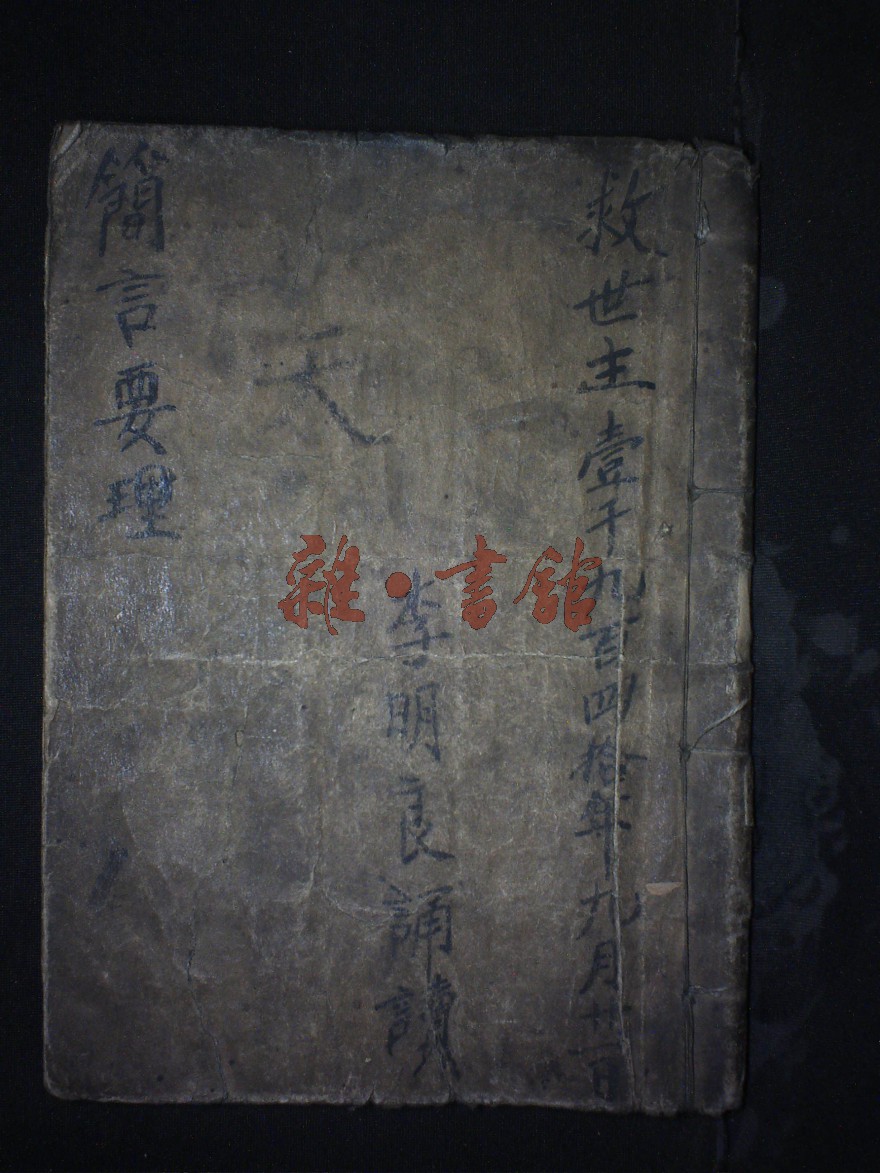 救世主壹千九百四拾年九月廿一日
李明良誦讀
天
簡言要理
雜·書館